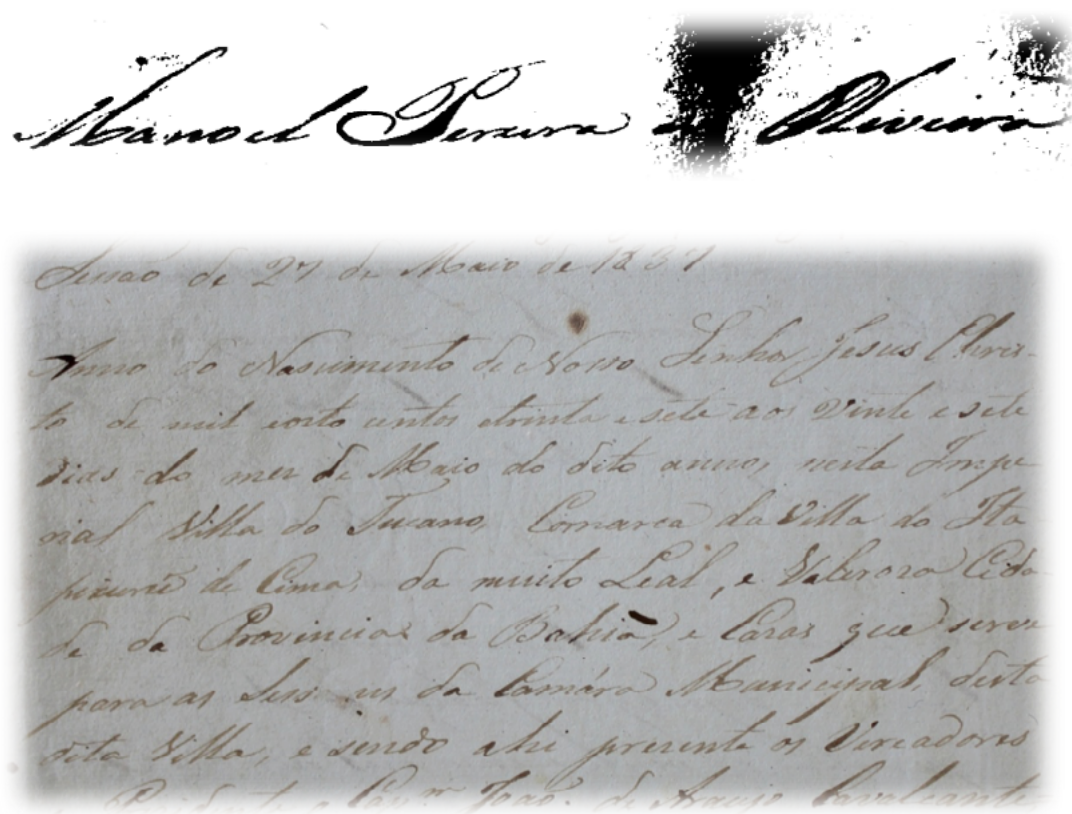 Manoel Pereira de Oliveira
Sessão de 27 de Maio de 1837
Anno do Nascimento de Nosso Senhor Jesus Chris-
to de mil eoito centos etrinta esete aos Vinte esete
dias do mez de Maio do dito anno, nesta Impe
rial Villa do Tucano, Comarca da Villa do Ita
picurú de Cima, da muito Leal, e Valeroza Cida
de da Provincia da Bahia, e Cazas que servem
para as Sessões da Camára Municipal, desta
dita Villa, e sendo ahi prezente os Vereadores
Prezidente o Cap.m João de Araujo Cavalcante